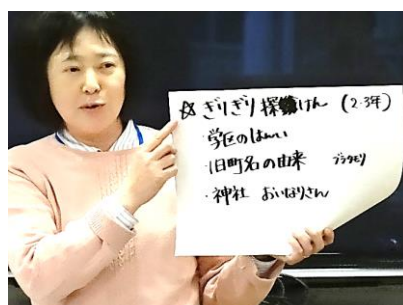 ☆ぎりぎり探けん (2・3年)
・学区のはんい
・旧町名の由来 ブラタモリ
・神社 おいなりさん